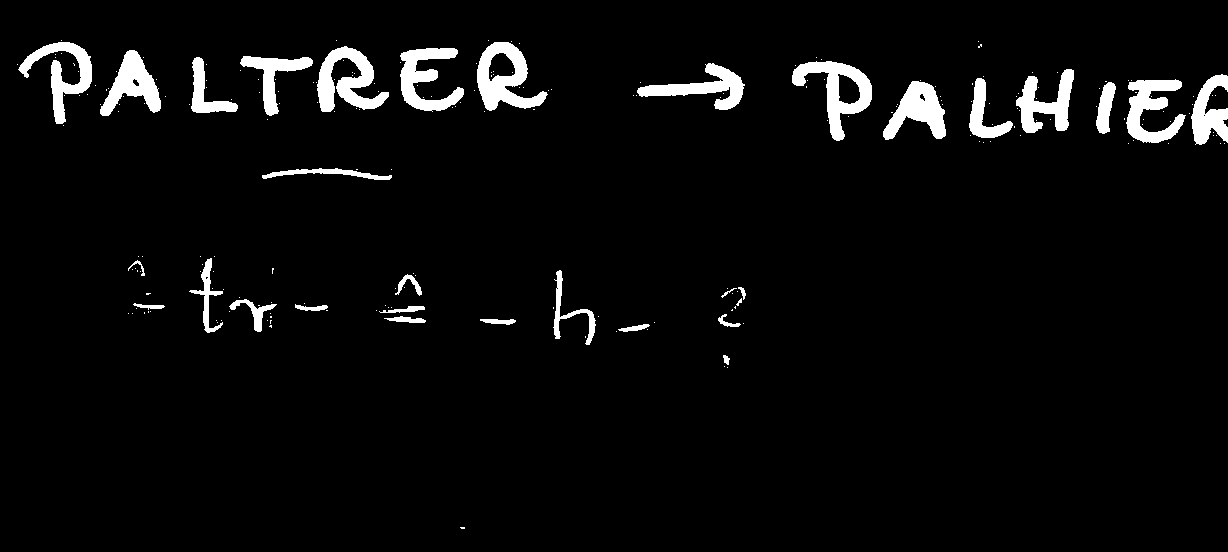 PALTRER → PALHIER
- tr - ≙ - h - ?